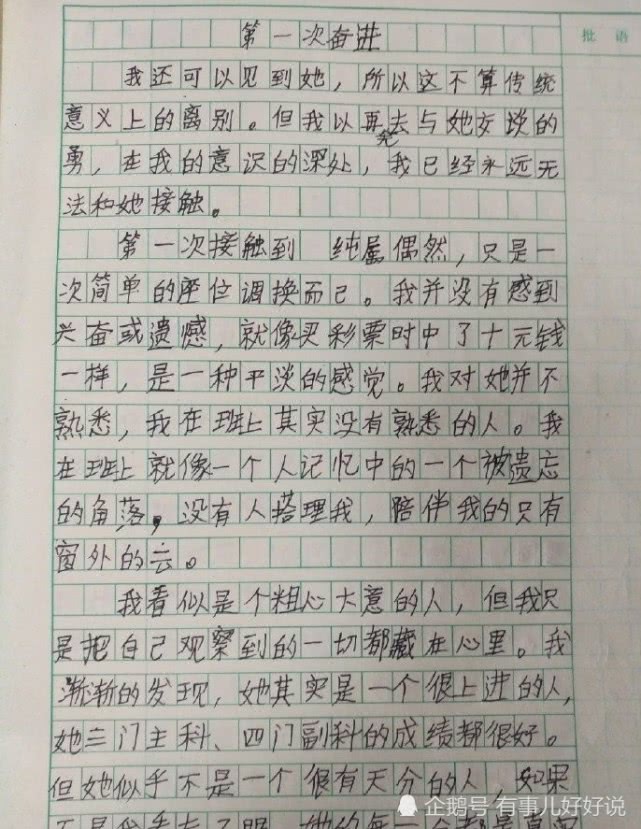 第一次奋进
批语
我还可以见到她，所以这不算传统
意义上的离别。但我以再无去与她交谈的
勇，在我的意识的深处，我已经永远无
法和她接触。
第一次接触到 纯属偶然，只是一
次简单的座位调换而己。我并没有感到
兴奋或遗憾，就像买彩票时中了十元钱
一样，是一种平淡的感觉。我对她并不
熟悉，我在班上其实没有熟悉的人。我
在班上就像一个人记忆中的一个被遗忘
的角落，没有人搭理我，陪伴我的只有
窗外的云。
我看似是个粗心大意的人，但我只
是把自己观察到的一切都藏在心里。我
渐渐的发现，她其实是一个很上进的人，
她三门主科、四门副科的成绩都很好。
但她似乎不是一个很有天分的人，如果
企鹅号 有事儿好好说